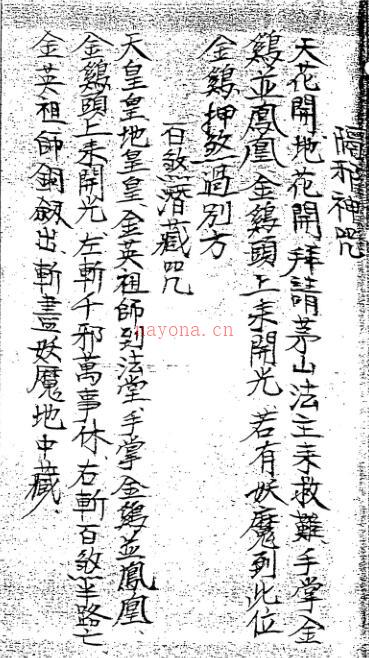 隔邪神咒
天花開地花開拜請茅山法主来救難、手掌金
鷄並鳳凰、金鷄頭上来開光、若有妖魔到此位
金鷄押煞過別方
百煞潛藏咒
天皇皇地皇皇、金英祖師到法堂、手掌金鷄並鳳凰、
金鷄頭上来開光、左斬千邪萬事休、右斬百煞半路亡
金英祖師銅劔出、斬盡妖魔地中藏、
nayona.cn